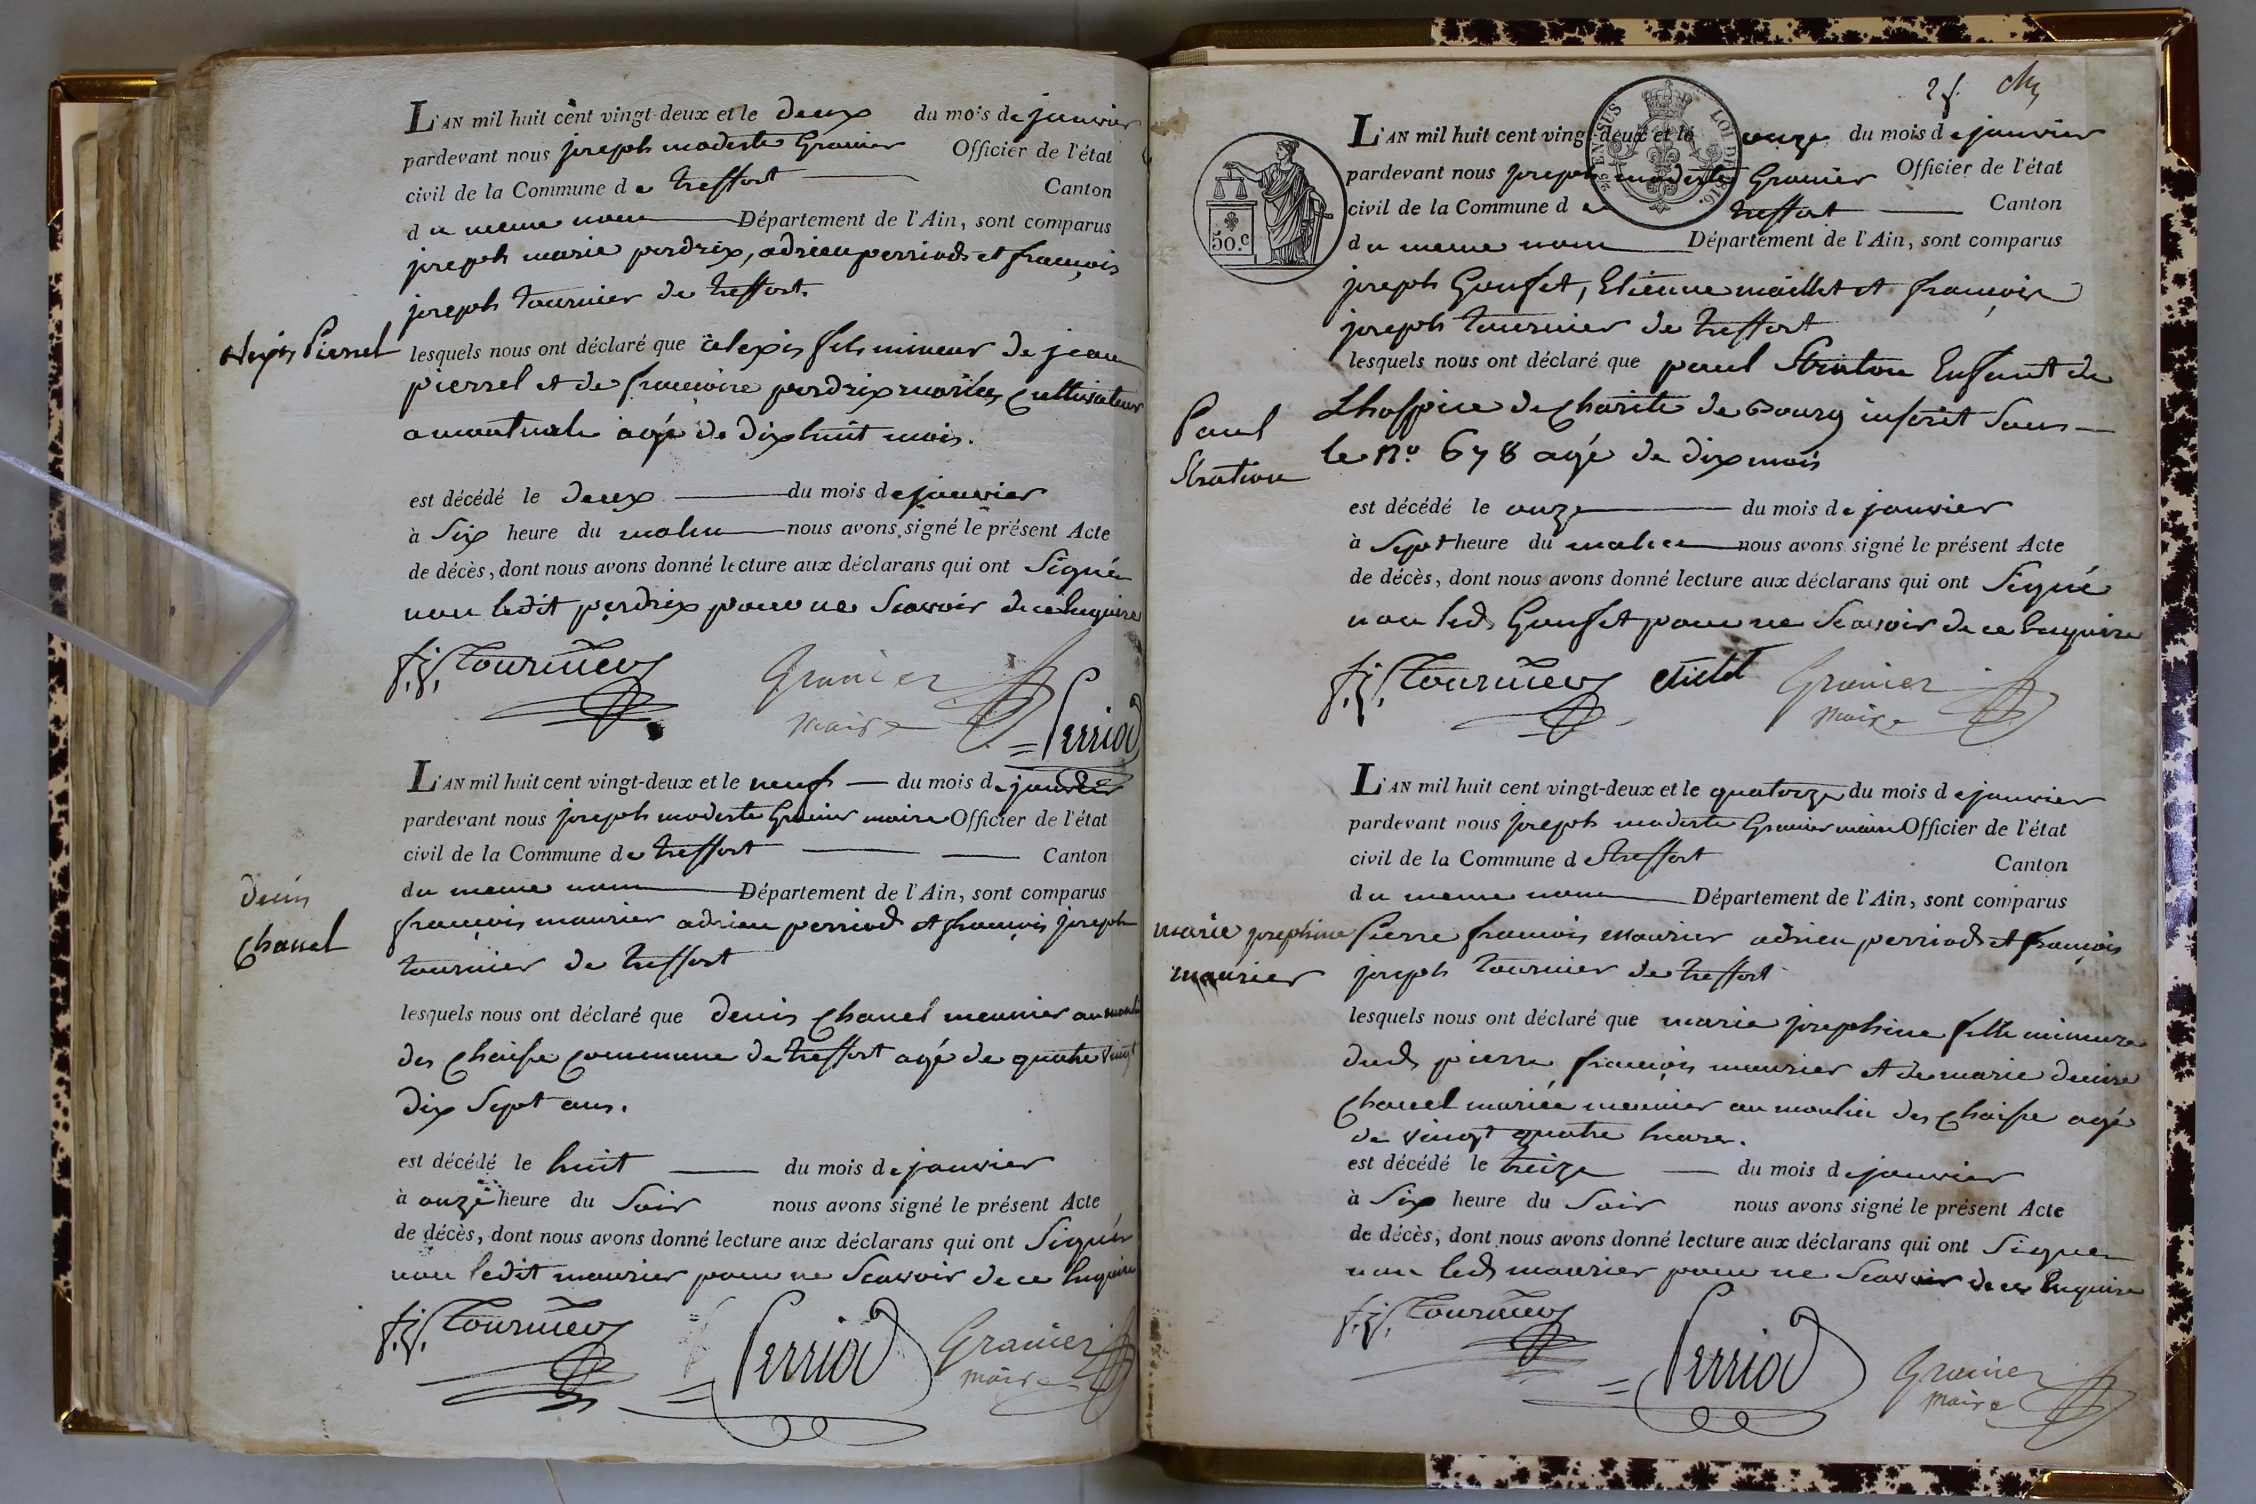 L'AN mil huit cent vingt-deux et le deux du mois de janvier
pardevant nous joseph modeste Granier Officier de l'état
civil de la Commune de treffort Canton
du meme nom Département de l'Ain, sont comparus
joseph marie perdrix, adrien perriod et françois
joseph tournier de treffort.
Alexis Pierrel
lesquels nous ont déclaré que alexis fils mineur de jean
pierrel et de francoise perdrix mariés cultivateur
a montmale agé de dix huit mois.
est décédé le deux du mois de janvier
à Six heure du matin nous avons signé le présent Acte
de décès, dont nous avons donné lecture aux déclarans qui ont Signé
non ledit perdrix pour ne Scavoir de ce Enquire
f. j. Tournier Granier
maire
Perriod
L'AN mil huit cent vingt-deux et le neuf du mois de janvier
pardevant nous joseph modeste Granier maire Officier de l'état
civil de la Commune de treffort Canton
du meme nom Département de l'Ain, sont comparus
denis
Chanel
françois maurier adrien perriod et françois joseph
tournier de treffort
lesquels nous ont déclaré que denis Chanel meunier au moulin
des Chaise Commune de treffort agé de quatre vingt
dix Sept ans.
est décédé le huit du mois de janvier
à onze heure du Soir nous avons signé le présent Acte
de décès, dont nous avons donné lecture aux déclarans qui ont Signés
non ledit maurier pour ne Scavoir de ce Enquire
f. j. Tournier Perriod Granier
maire
2 f.
CENSUS LOI DE 1816.
50.c
L'AN mil huit cent vingt-deux et le onze du mois de janvier
pardevant nous joseph modeste Granier Officier de l'état
civil de la Commune de treffort Canton
du meme nom Département de l'Ain, sont comparus
joseph Gonfet, Etienne maillet et françois
joseph tournier de treffort
lesquels nous ont déclaré que paul Straton Enfant de
Paul
Straton
Lhospice de Charité de Bourg inscrit Sous
le No 678 agé de dix mois
est décédé le onze du mois de janvier
à Sept heure du matin nous avons signé le présent Acte
de décès, dont nous avons donné lecture aux déclarans qui ont Signé
non led Gonfet pour ne Scavoir de ce Enquire
f. j. Tournier Granier
maire
L'AN mil huit cent vingt-deux et le quatorze du mois de janvier
pardevant nous joseph modeste Granier maire Officier de l'état
civil de la Commune de treffort Canton
du meme nom Département de l'Ain, sont comparus
marie josephine
maurier
Pierre francois maurier adrien perriod et françois
joseph tournier de treffort
lesquels nous ont déclaré que marie josephine fille mineure
dud pierre françois maurier et de marie denise
Chanel mariée meunier au moulin des Chaise agé
de vingt quatre heure.
est décédé le treize du mois de janvier
à Six heure du Soir nous avons signé le présent Acte
de décès, dont nous avons donné lecture aux déclarans qui ont Signer
non led maurier pour ne Scavoir de ce Enquire
f. j. Tournier Perriod Granier
maire